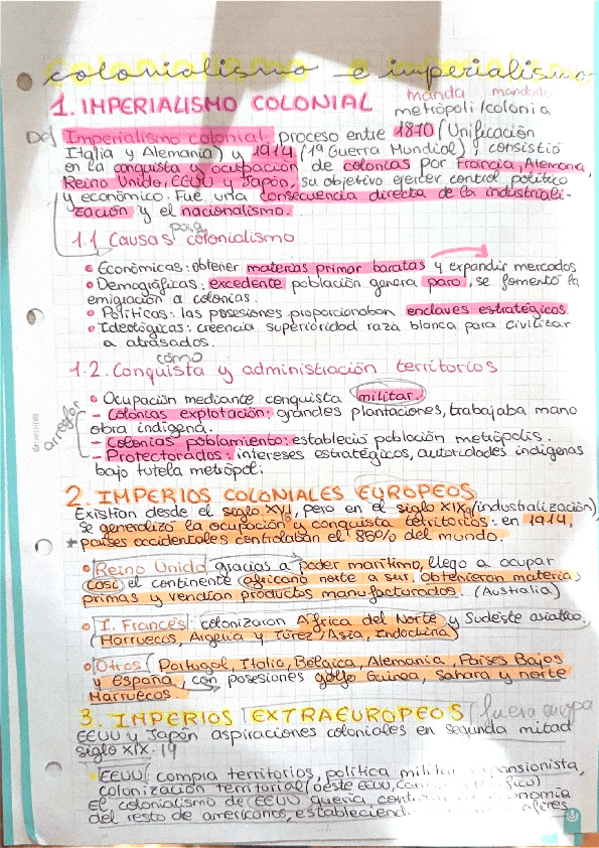 colonialismo e imperialismo
manda mandado
1. IMPERIALISMO COLONIAL metrópoli/colonia
Def Imperialismo colonial: proceso entre 1870 (Unificación
Italia y Alemania) y 1914 (1ª Guerra Mundial) y consistió
en la conquista y ocupación de colonias por Francia, Alemania,
Reino Unido, EEUU y Japón, su objetivo ejercer control político
y económico. Fue una consecuencia directa de la industriali-
zación y el nacionalismo.
para
1.1 Causas colonialismo
• Económicas: obtener materias primar baratas y expandir mercados
• Demográficas: excedente población genera paro, se fomentó la
emigración a colonias.
• Políticas: las posesiones proporcionaban enclaves estratégicos.
• Ideológicas: creencia superioridad raza blanca para civilizar
a atrasados.
como
1.2. Conquista y administración territorios
• Ocupación mediante conquista militar.
arreglos
- Colonias explotación: grandes plantaciones, trabajaba mano
obra indígena.
- Colonias poblamiento: estableció población metrópolis.
- Protectorados: intereses estratégicos, autoridades indígenas
bajo tutela metrópoli.
2. IMPERIOS COLONIALES EUROPEOS
Existían desde el siglo XVI, pero en el siglo XIX (industrialización)
se generalizó la ocupación y conquista territorios: en 1914,
* países occidentales controlaban el 85% del mundo.
• Reino Unido gracias a poder marítimo, llego a ocupar
casi el continente africano norte a sur. Obtenieron materia
primas y vendían productos manufacturados. (Australia)
• I. Francés: colonizaron África del Norte y Sudeste asiático.
(Marruecos, Argelia y Túnez/Asia, Indochina)
• Otros (Portugal, Italia, Bélgica, Alemania, Países Bajos
y España, con posesiones golfo Guinea, Sahara y norte
Marruecos.
3. IMPERIOS EXTRAEUROPEOS (fuera europa
EEUU y Japón aspiraciones coloniales en segunda mitad
siglo XIX. 19
• EEUU: compra territorios, política militar expansionista,
colonización territorial (oeste EEUU,
El colonialismo de EEUU quería economía
del resto de americanos,